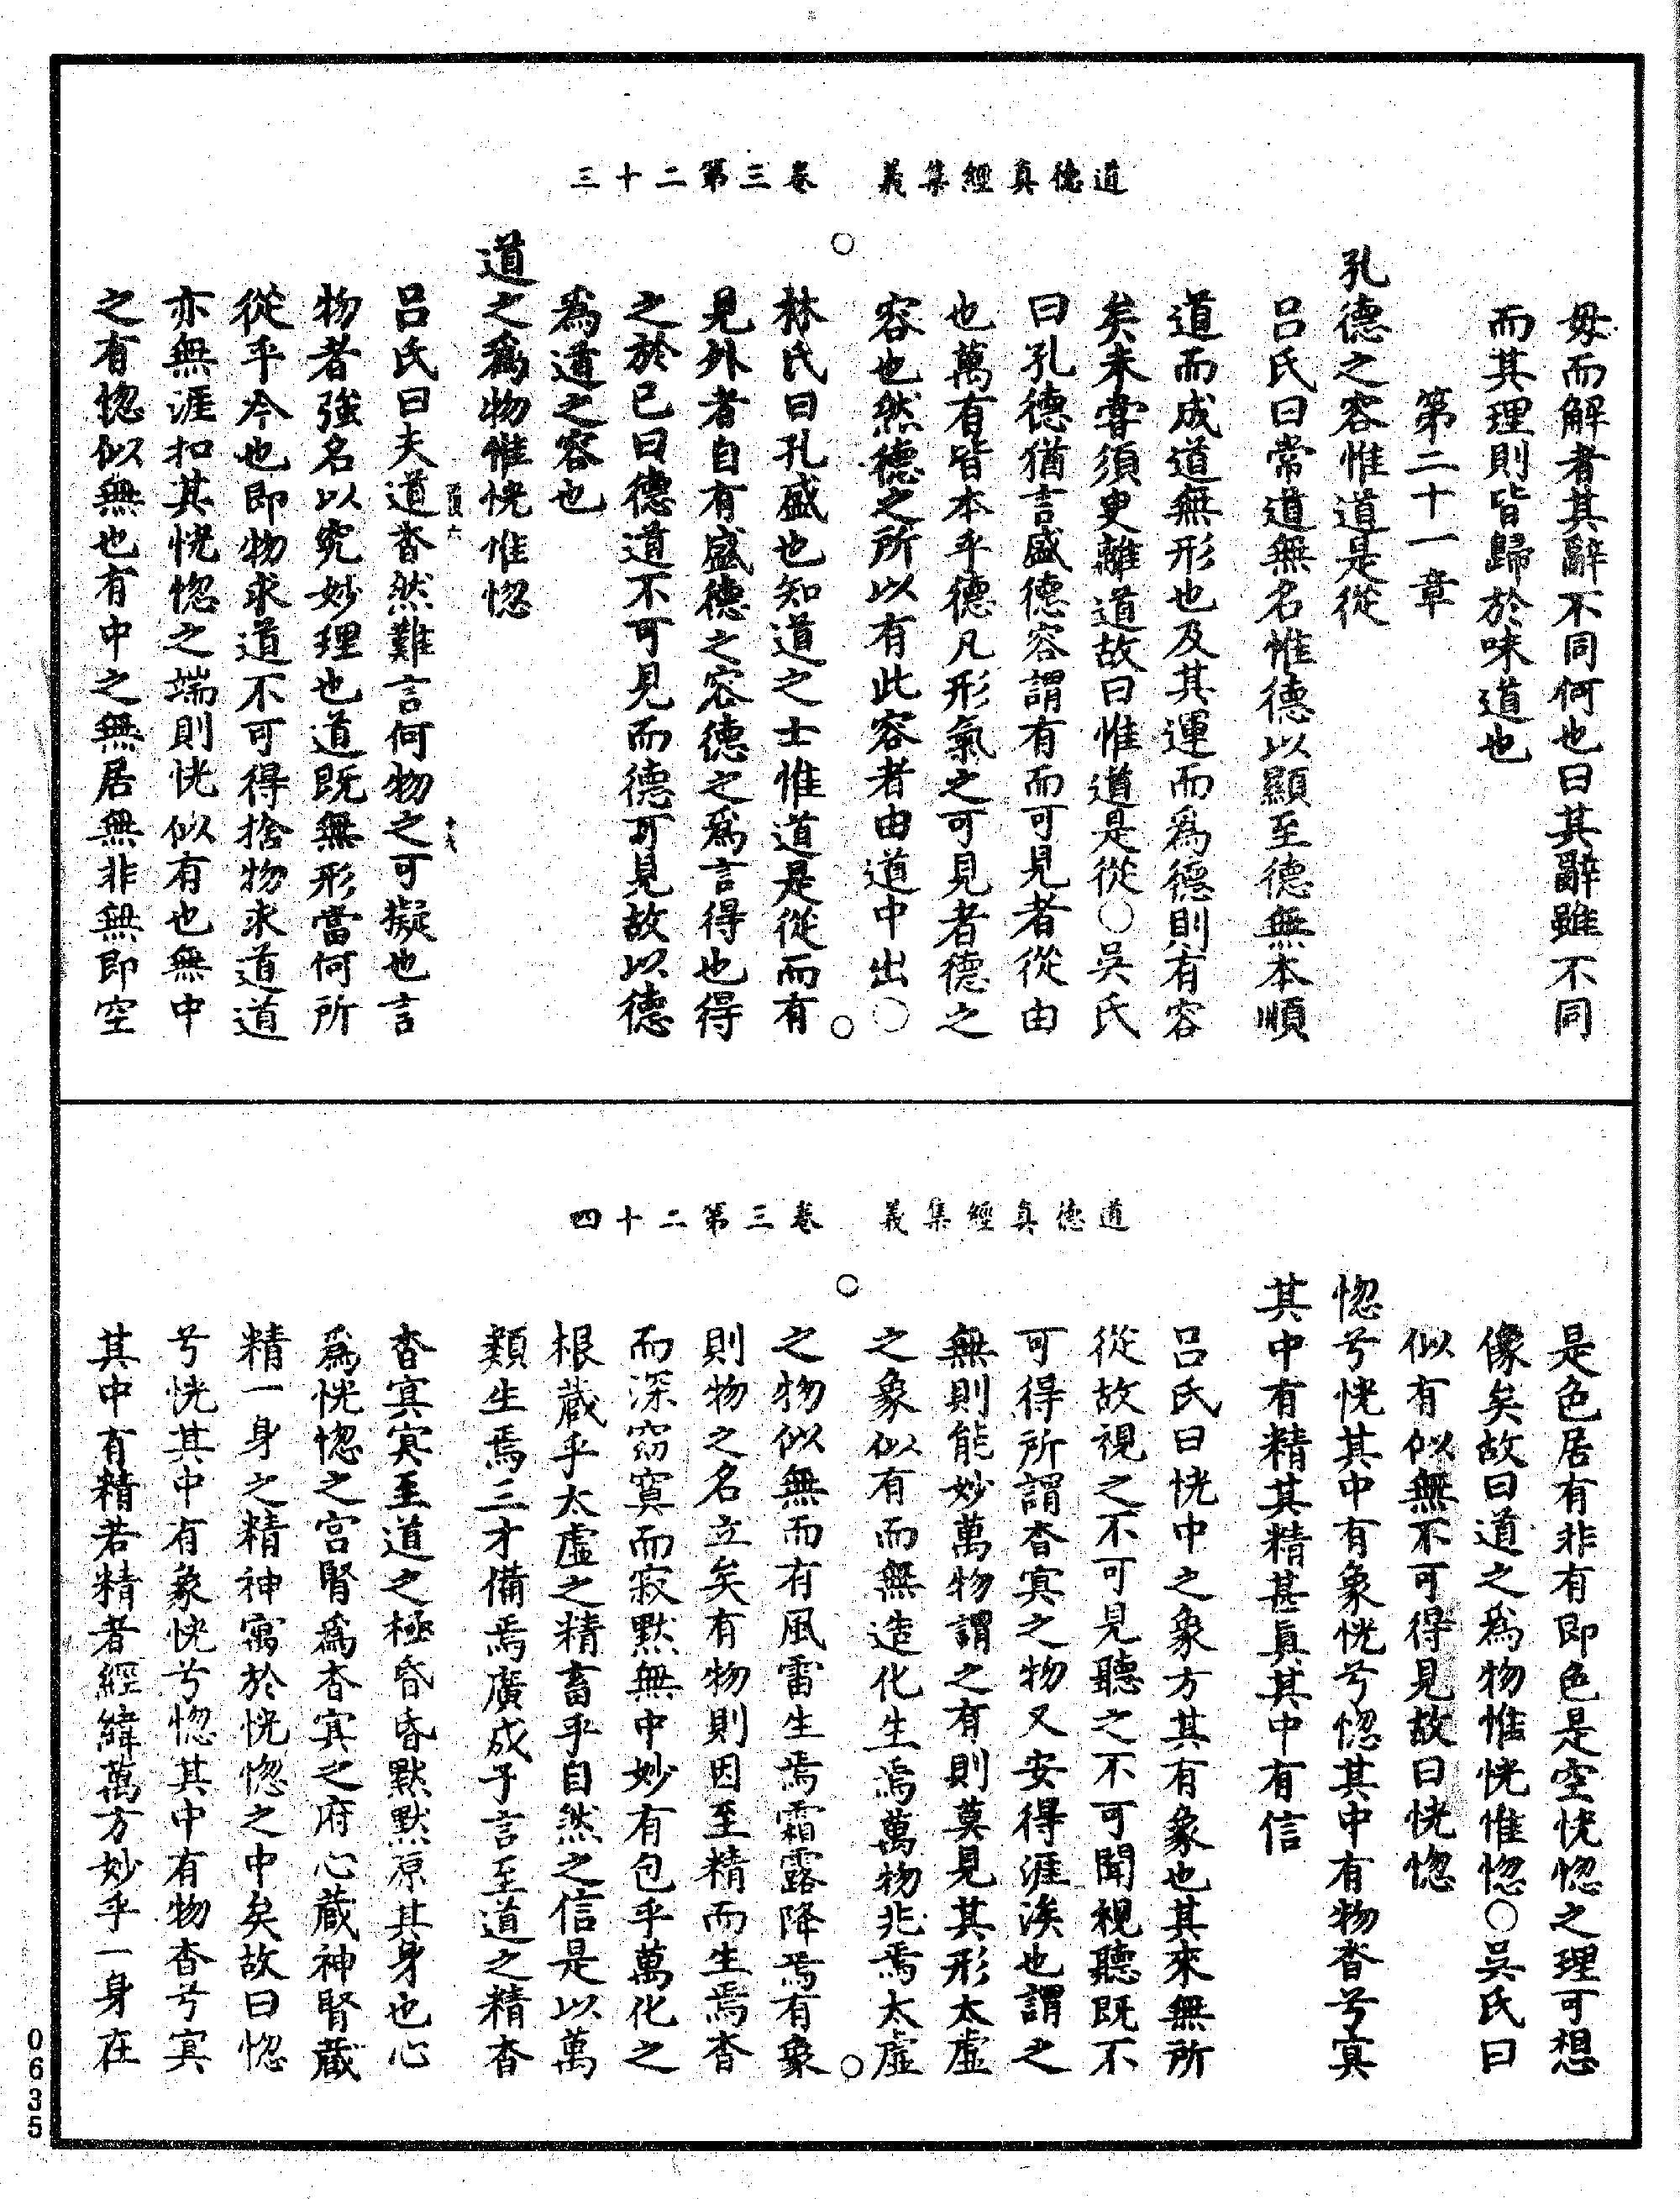 道德真經集義　卷三第二十三
毋而解者其辭不同何也曰其辭雖不同
而其理則皆歸於味道也
第二十一章
孔德之容惟道是從
呂氏曰常道無名惟德以顯至德無本順
道而成道無形也及其運而爲德則有容
矣未甞須臾離道故曰惟道是從○吳氏
曰孔德猶言盛德容謂有而可見者從由
也萬有皆本乎德凡形氣之可見者德之
容也然德之所以有此容者由道中出○
林氏曰孔盛也知道之士惟道是從而有
見外者自有盛德之容德之爲言得也得
之於已曰德道不可見而德可見故以德
爲道之容也
道之爲物惟恍惟惚
呂氏曰夫道杳然難言何物之可擬也言
物者強名以究妙理也道既無形當何所
從乎今也即物求道不可得捨物求道道
亦無涯扣其恍惚之端則恍似有也無中
之有惚似無也有中之無居無非無即空
道德真經集義　卷三第二十四
是色居有非有即色是空恍惚之理可想
像矣故曰道之爲物惟恍惟惚○吳氏曰
似有似無不可得見故曰恍惚
惚兮恍其中有象恍兮惚其中有物杳兮冥
其中有精其精甚真其中有信
呂氏曰恍中之象方其有象也其來無所
從故視之不可見聽之不可聞視聽既不
可得所謂杳冥之物又安得涯涘也謂之
無則能妙萬物謂之有則莫見其形太虛
之象似有而無造化生焉萬物兆焉太虛
之物似無而有風雷生焉霜露降焉有象
則物之名立矣有物則因至精而生焉杳
而深窈寞而寂默無中妙有包乎萬化之
根蔵乎太虛之精畜乎自然之信是以萬
類生焉三才備焉廣成子言至道之精杳
杳冥冥至道之極昏昏默默原其身也心
爲恍惚之宮腎爲杳冥之府心蔵神腎蔵
精一身之精神寓於恍惚之中矣故曰惚
兮恍其中有象恍兮惚其中有物杳兮冥
其中有精若精者經緯萬方妙乎一身在
0635